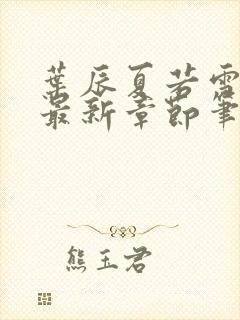 葉辰夏若雪
最新章節筆
熊玉君